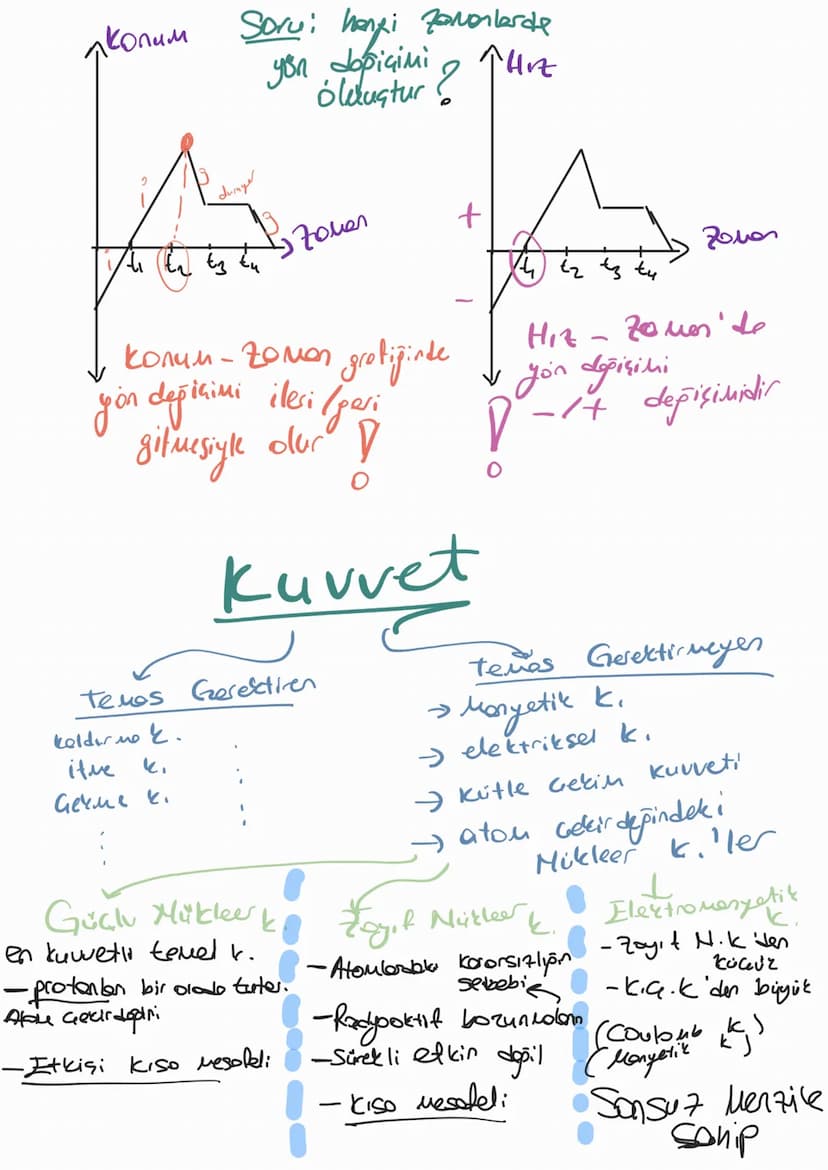 Soru: hangi zamanlarda
yön değişimi
olmuştur?
Konum
i
g
duruyor
g
i
t₁ t₂ t₃ t₄
Zaman
Konum - Zaman grafiğinde
yön değişimi ileri/geri
gitmesiyle olur !
Hız
+
-
t₁ t₂ t₃ t₄
Zaman
Hız - Zaman'da
yön değişimi
-/+ değişimidir
!
Kuvvet
Temas Gerektiren
kaldırma k.
itme k.
Çekme k.
Temas Gerektirmeyen
→ Manyetik k.
→ elektriksel k.
→ kütle çekim kuvveti
→ atom çekirdeğindeki
Nükleer k.'ler
Güçlü Nükleer k.
en kuvvetli temel k.
- protonları bir arada tutar.
Atom çekirdeğini
- Etkisi kısa mesafeli
Zayıf Nükleer k.
- Atomlardaki kararsızlığın
sebebi
- Radyoaktif bozunmaların
- Sürekli etkin değil
- kısa mesafeli
Elektromanyetik
k.
- Zayıf N.k'den
- K.Ç.K'den büyük
(Coulomb k)
(Manyetik k)
Sonsuz Menzile
Sahip